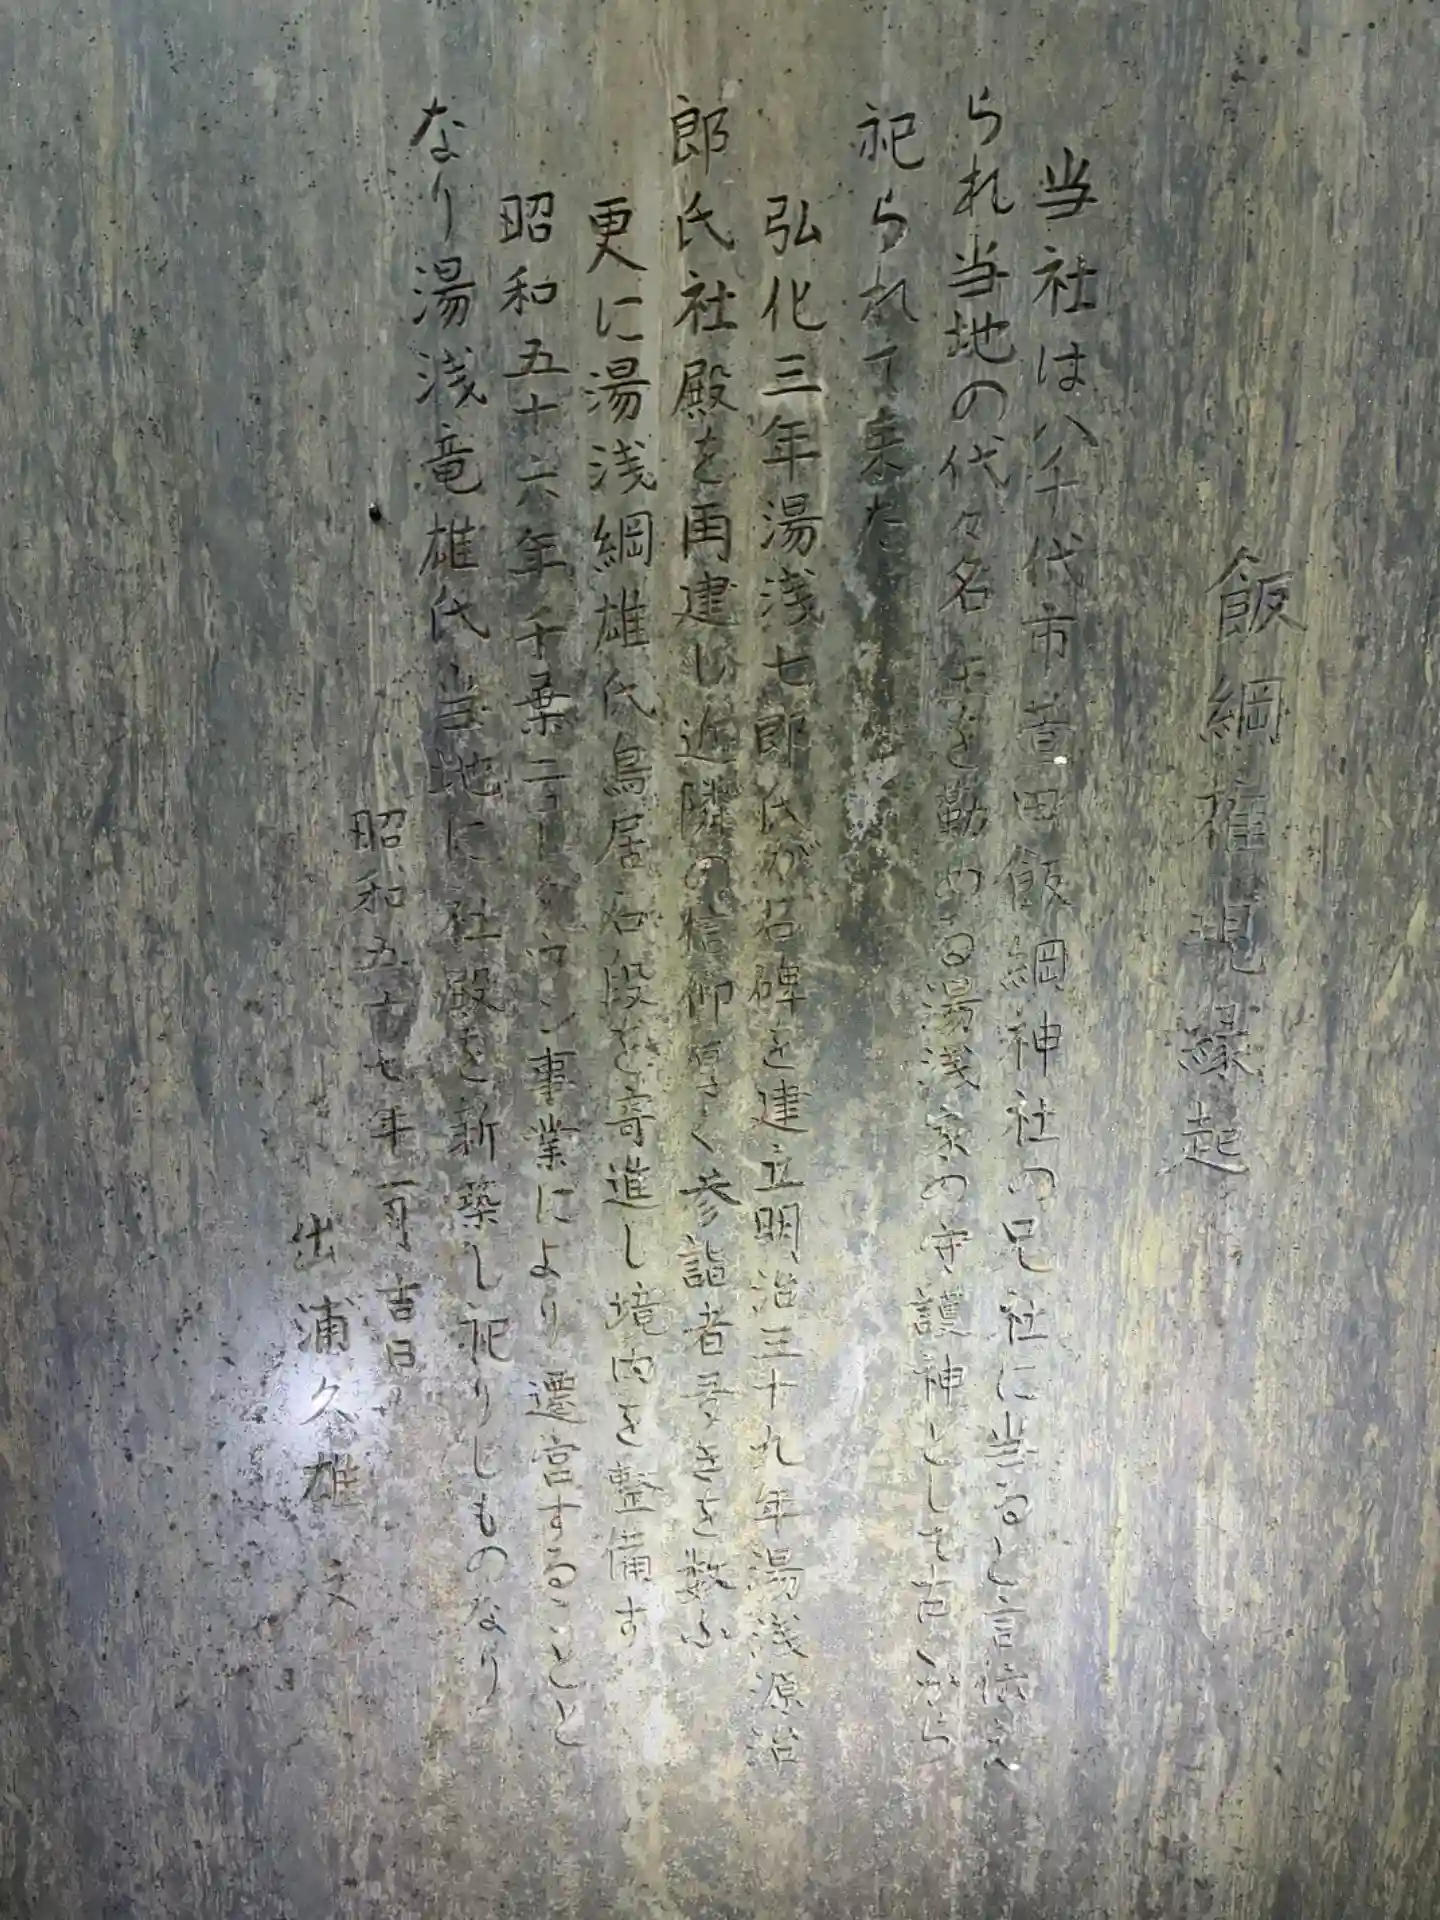 飯綱権現縁起
当社は八千代市萱田飯綱神社の兄社に当ると言伝え
られ当地の代々名主を勤める湯浅家の守護神として古くから
祀られて来た
弘化三年湯浅七郎氏が石碑を建立明治三十九年湯浅源治
郎氏社殿を再建し近隣の信仰厚く参詣者多きを数ふ
更に湯浅綱雄氏鳥居石段を寄進し境内を整備す
昭和五十六年千葉ニュータウン事業により遷宮することと
なり湯浅竜雄氏当地に社殿を新築し祀りしものなり
昭和五十七年一月吉日
出浦久雄 文